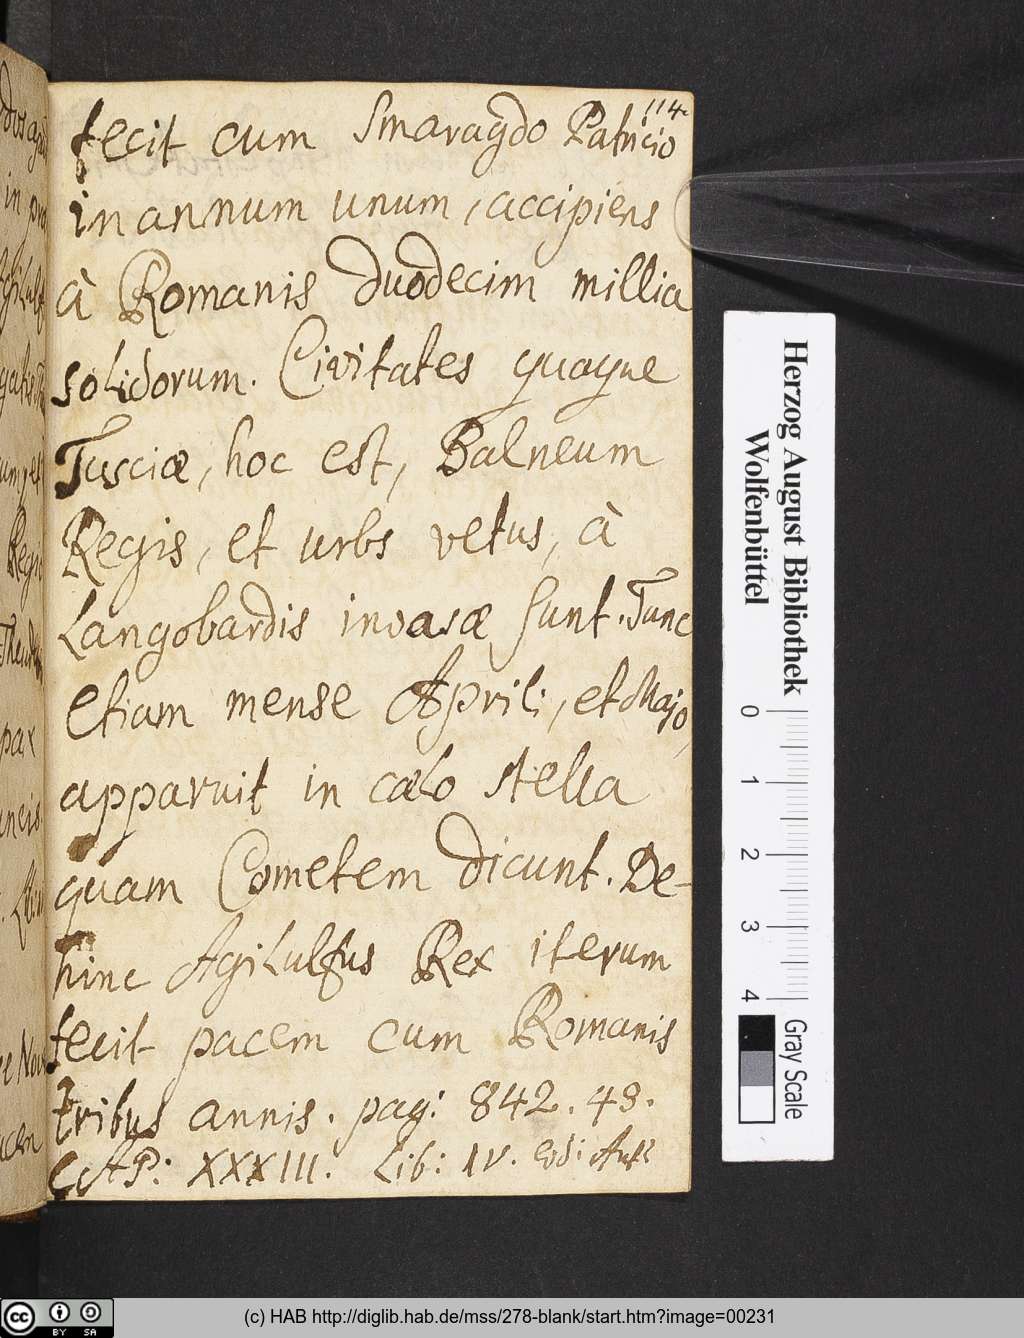 114.
fecit cum Smaragdo Patricio
in annum unum, accipiens
à Romanis duodecim millia
solidorum. Civitates quoque
Tusciæ, hoc est, Balneum
Regis, et urbs vetus, à
Langobardis invasæ sunt. Tunc
etiam mense Aprili, et Majo,
apparuit in cælo stella
quam Cometem dicunt. De-
hinc Agilulfus Rex iterum
fecit pacem cum Romanis
tribus annis. pag: 842. 43.
CAP: XXXIII. Lib: IV.
Herzog August Bibliothek
Wolfenbüttel
0 1 2 3 4
Gray Scale
(c) HAB http://diglib.hab.de/mss/278-blank/start.htm?image=00231
cc BY SA